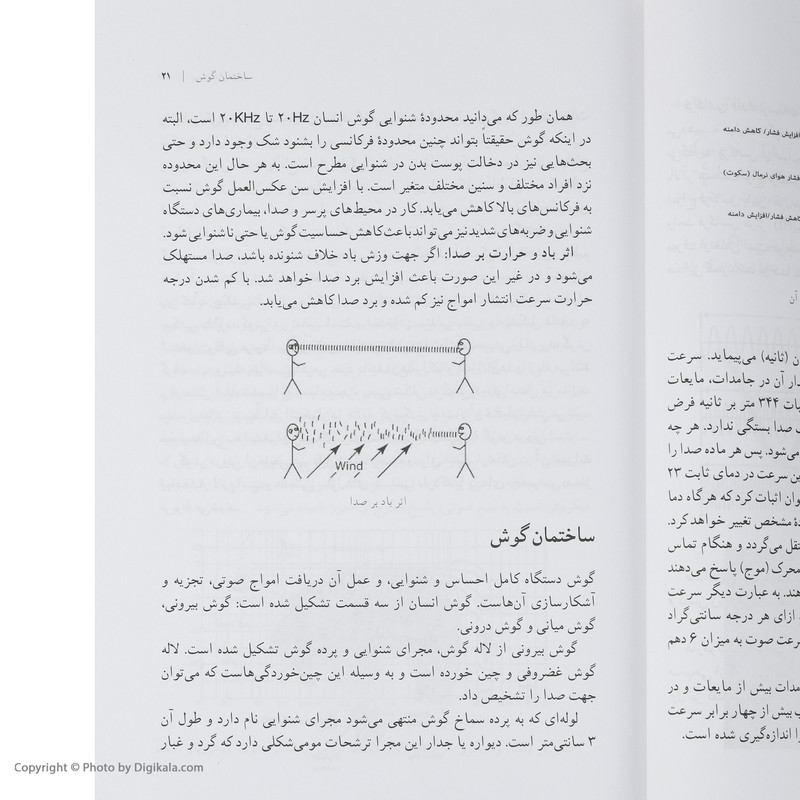 ساختمان گوش | ۲۱
همان طور که می‌دانید محدودهٔ شنوایی گوش انسان ۲۰Hz تا ۲۰KHz است، البته
در اینکه گوش حقیقتاً بتواند چنین محدودهٔ فرکانسی را بشنود شک وجود دارد و حتی
بحث‌هایی نیز در دخالت پوست بدن در شنوایی مطرح است. به هر حال این محدوده
نزد افراد مختلف و سنین مختلف متغیر است. با افزایش سن عکس‌العمل گوش نسبت
به فرکانس‌های بالا کاهش می‌یابد. کار در محیط‌های پرسر و صدا، بیماری‌های دستگاه
شنوایی و ضربه‌های شدید نیز می‌تواند باعث کاهش حساسیت گوش یا حتی ناشنوایی شود.
اثر باد و حرارت بر صدا: اگر جهت وزش باد خلاف شنونده باشد، صدا مستهلک
می‌شود و در غیر این صورت باعث افزایش برد صدا خواهد شد. با کم شدن درجه
حرارت سرعت انتشار امواج نیز کم شده و برد صدا کاهش می‌یابد.
Wind
اثر باد بر صدا
ساختمان گوش
گوش دستگاه کامل احساس و شنوایی، و عمل آن دریافت امواج صوتی، تجزیه و
آشکارسازی آن‌هاست. گوش انسان از سه قسمت تشکیل شده است: گوش بیرونی،
گوش میانی و گوش درونی.
گوش بیرونی از لاله گوش، مجرای شنوایی و پرده گوش تشکیل شده است. لاله
گوش غضروفی و چین خورده است و به وسیله این چین‌خوردگی‌هاست که می‌توان
جهت صدا را تشخیص داد.
لوله‌ای که به پرده سماخ گوش منتهی می‌شود مجرای شنوایی نام دارد و طول آن
۳ سانتی‌متر است. دیواره یا جدار این مجرا ترشحات مومی‌شکلی دارد که گرد و غبار
افزایش فشار/ کاهش دامنه
فشار هوای نرمال (سکوت)
کاهش فشار/افزایش دامنه
آن
(ثانیه) می‌پیماید. سرعت
آن در جامدات، مایعات
۳۴۴ متر بر ثانیه فرض
صدا بستگی ندارد. هر چه
می‌شود. پس هر ماده صدا را
سرعت در دمای ثابت ۲۳
اثبات کرد که هرگاه دما
مشخص تغییر خواهد کرد.
می‌گردد و هنگام تماس
محرک (موج) پاسخ می‌دهند
به عبارت دیگر سرعت
ازای هر درجه سانتی‌گراد
صوت به میزان ۶ دهم
بیش از مایعات و در
بیش از چهار برابر سرعت
اندازه‌گیری شده است.
Copyright © Photo by Digikala.com